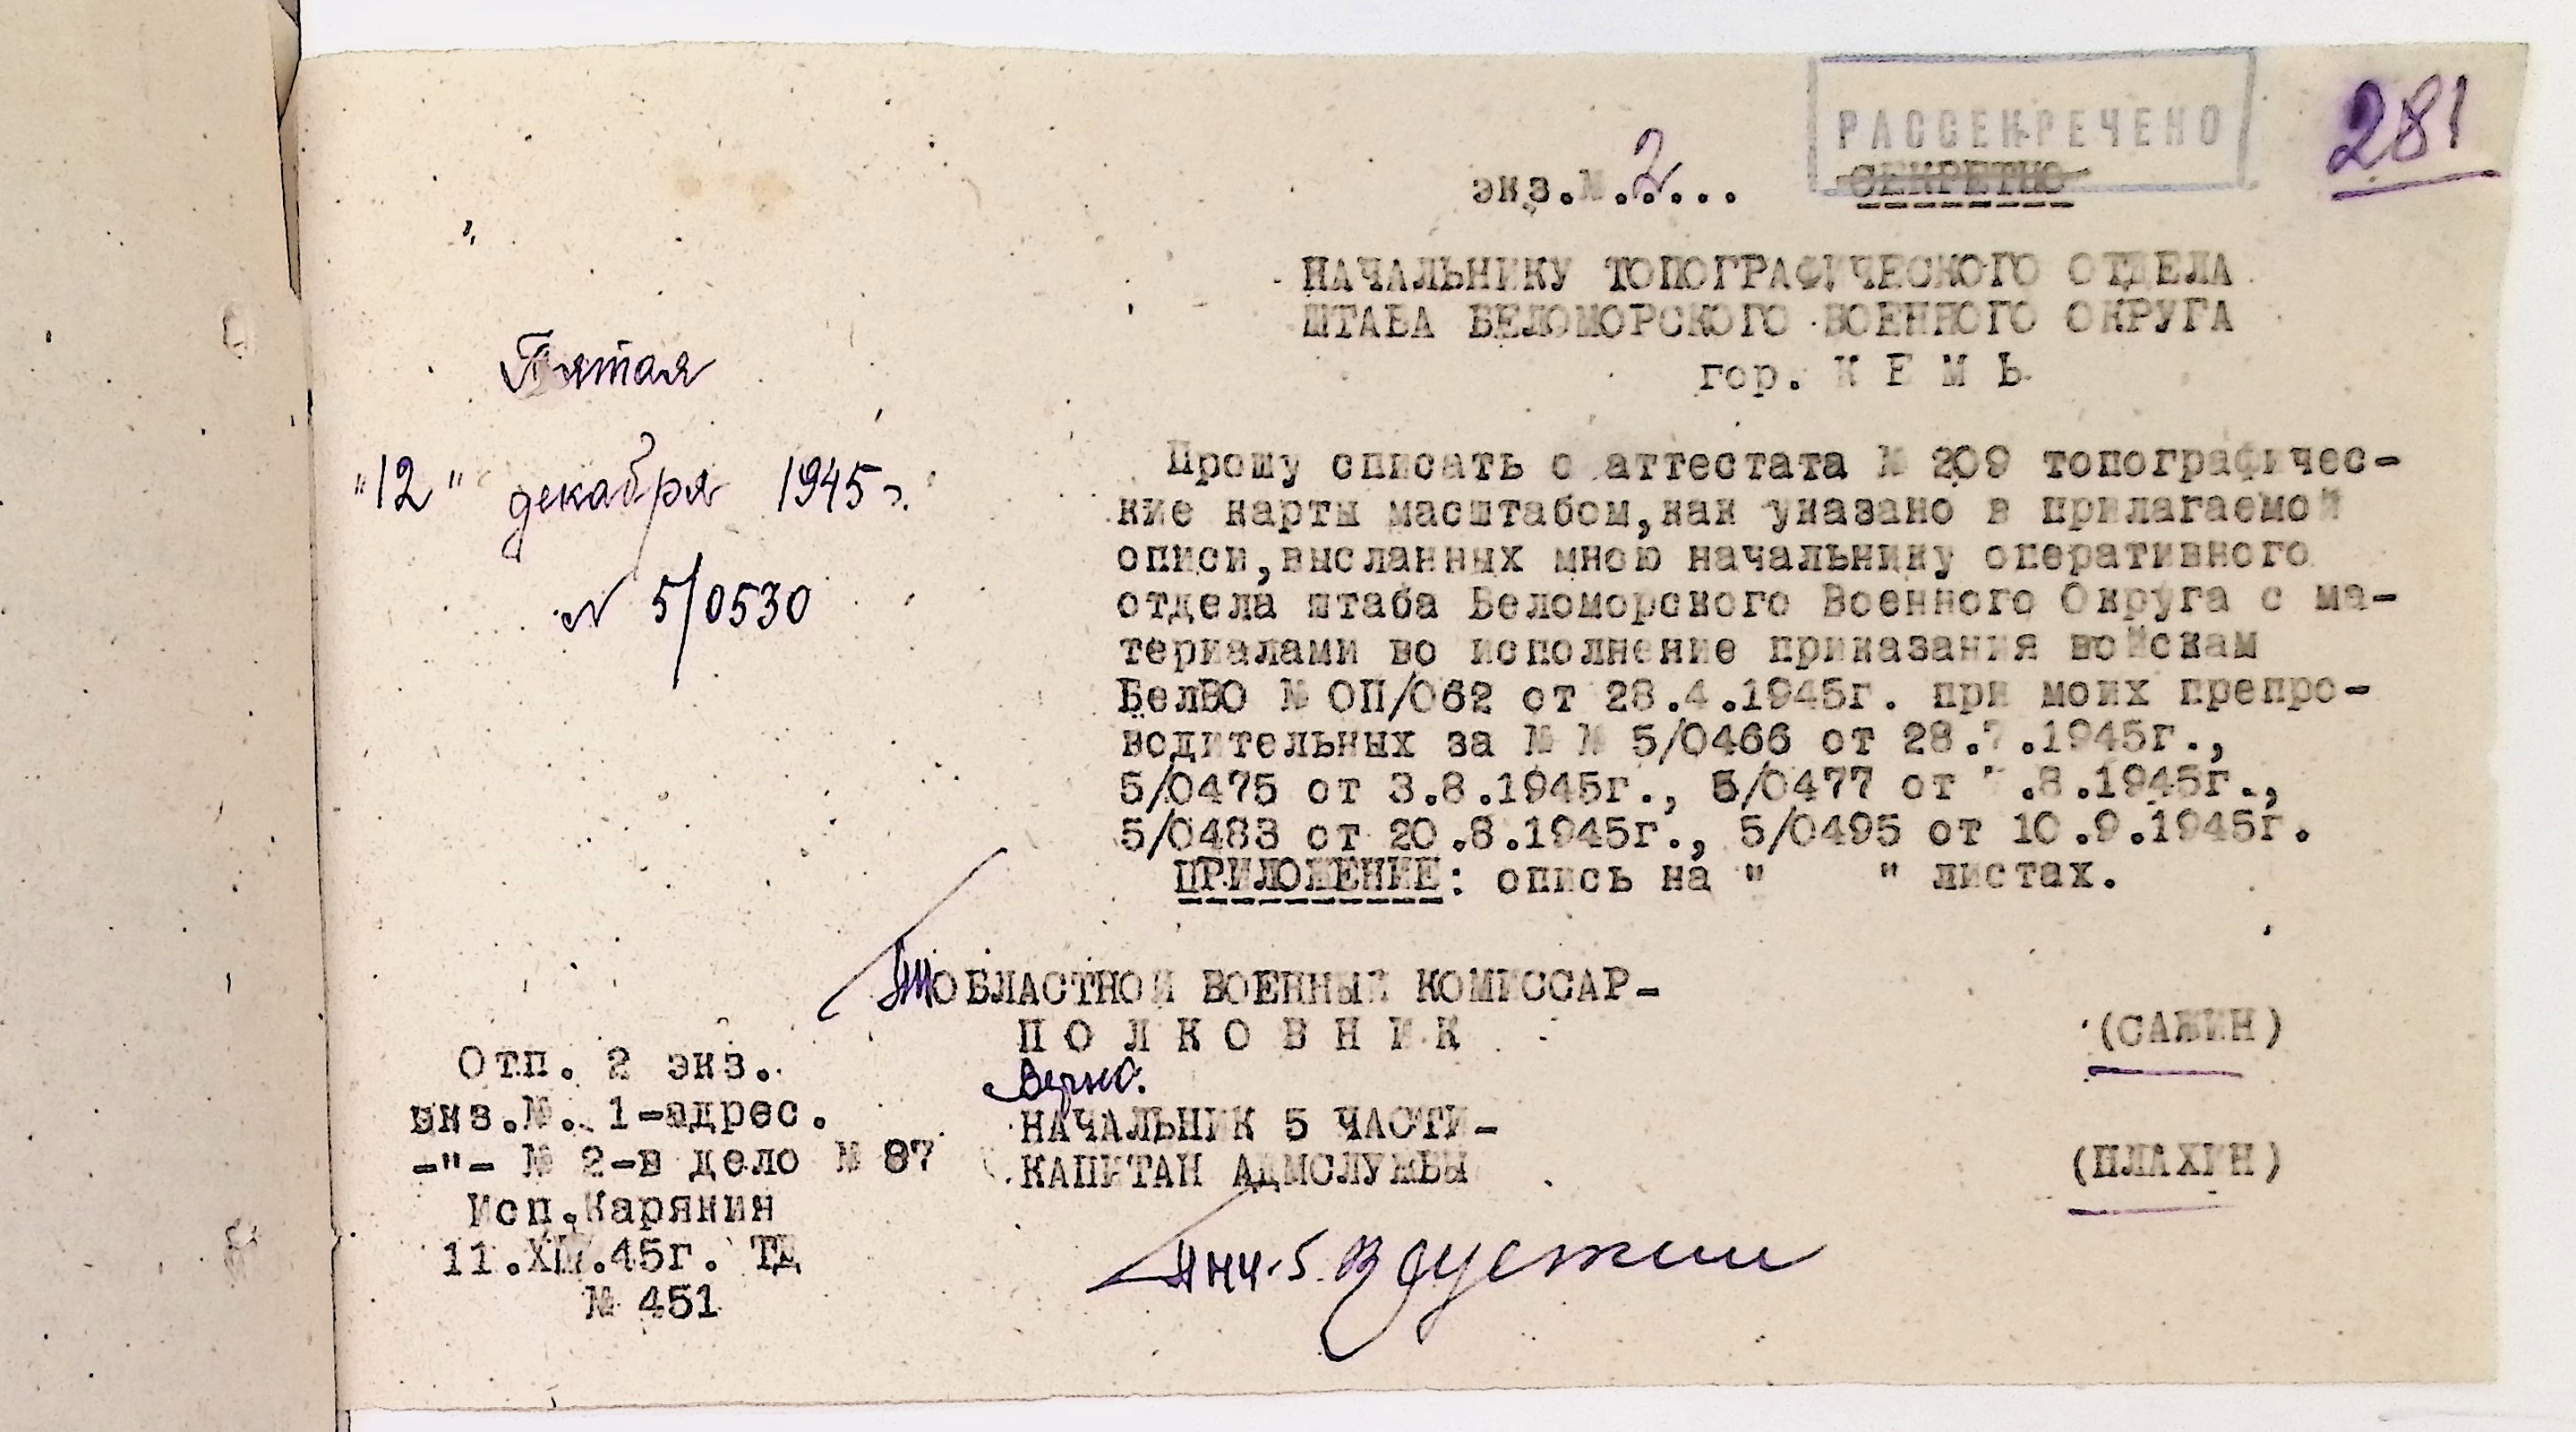 281
РАССЕКРЕЧЕНО
экз.№.2...
СЕКРЕТНО
НАЧАЛЬНИКУ ТОПОГРАФИЧЕСКОГО ОТДЕЛА
ШТАБА БЕЛОМОРСКОГО ВОЕННОГО ОКРУГА
гор. К Е М Ь
Пятая
"12" декабря 1945 г.
№ 5/0530
Прошу списать с аттестата № 209 топографичес-
кие карты масштабом,как указано в прилагаемой
описи,высланных мною начальнику оперативного
отдела штаба Беломорского Военного Округа с ма-
териалами во исполнение приказания войскам
БелВО № ОП/062 от 28.4.1945г. при моих препро-
водительных за № № 5/0466 от 28.7.1945г.,
5/0475 от 3.8.1945г., 5/0477 от .8.1945г.,
5/0483 от 20.8.1945г., 5/0495 от 10.9.1945г.
ПРИЛОЖЕНИЕ: опись на " " листах.
ОБЛАСТНОЙ ВОЕННЫЙ КОМИССАР-
П О Л К О В Н И К
(САВИН)
Верно:
НАЧАЛЬНИК 5 ЧАСТИ-
КАПИТАН АДМСЛУЖБЫ
(ПЛАХИН)
Отп. 2 экз.
экз.№. 1-адрес.
-"- № 2-в дело № 87
Исп.Карянин
11.XII.45г. ТД
№ 451